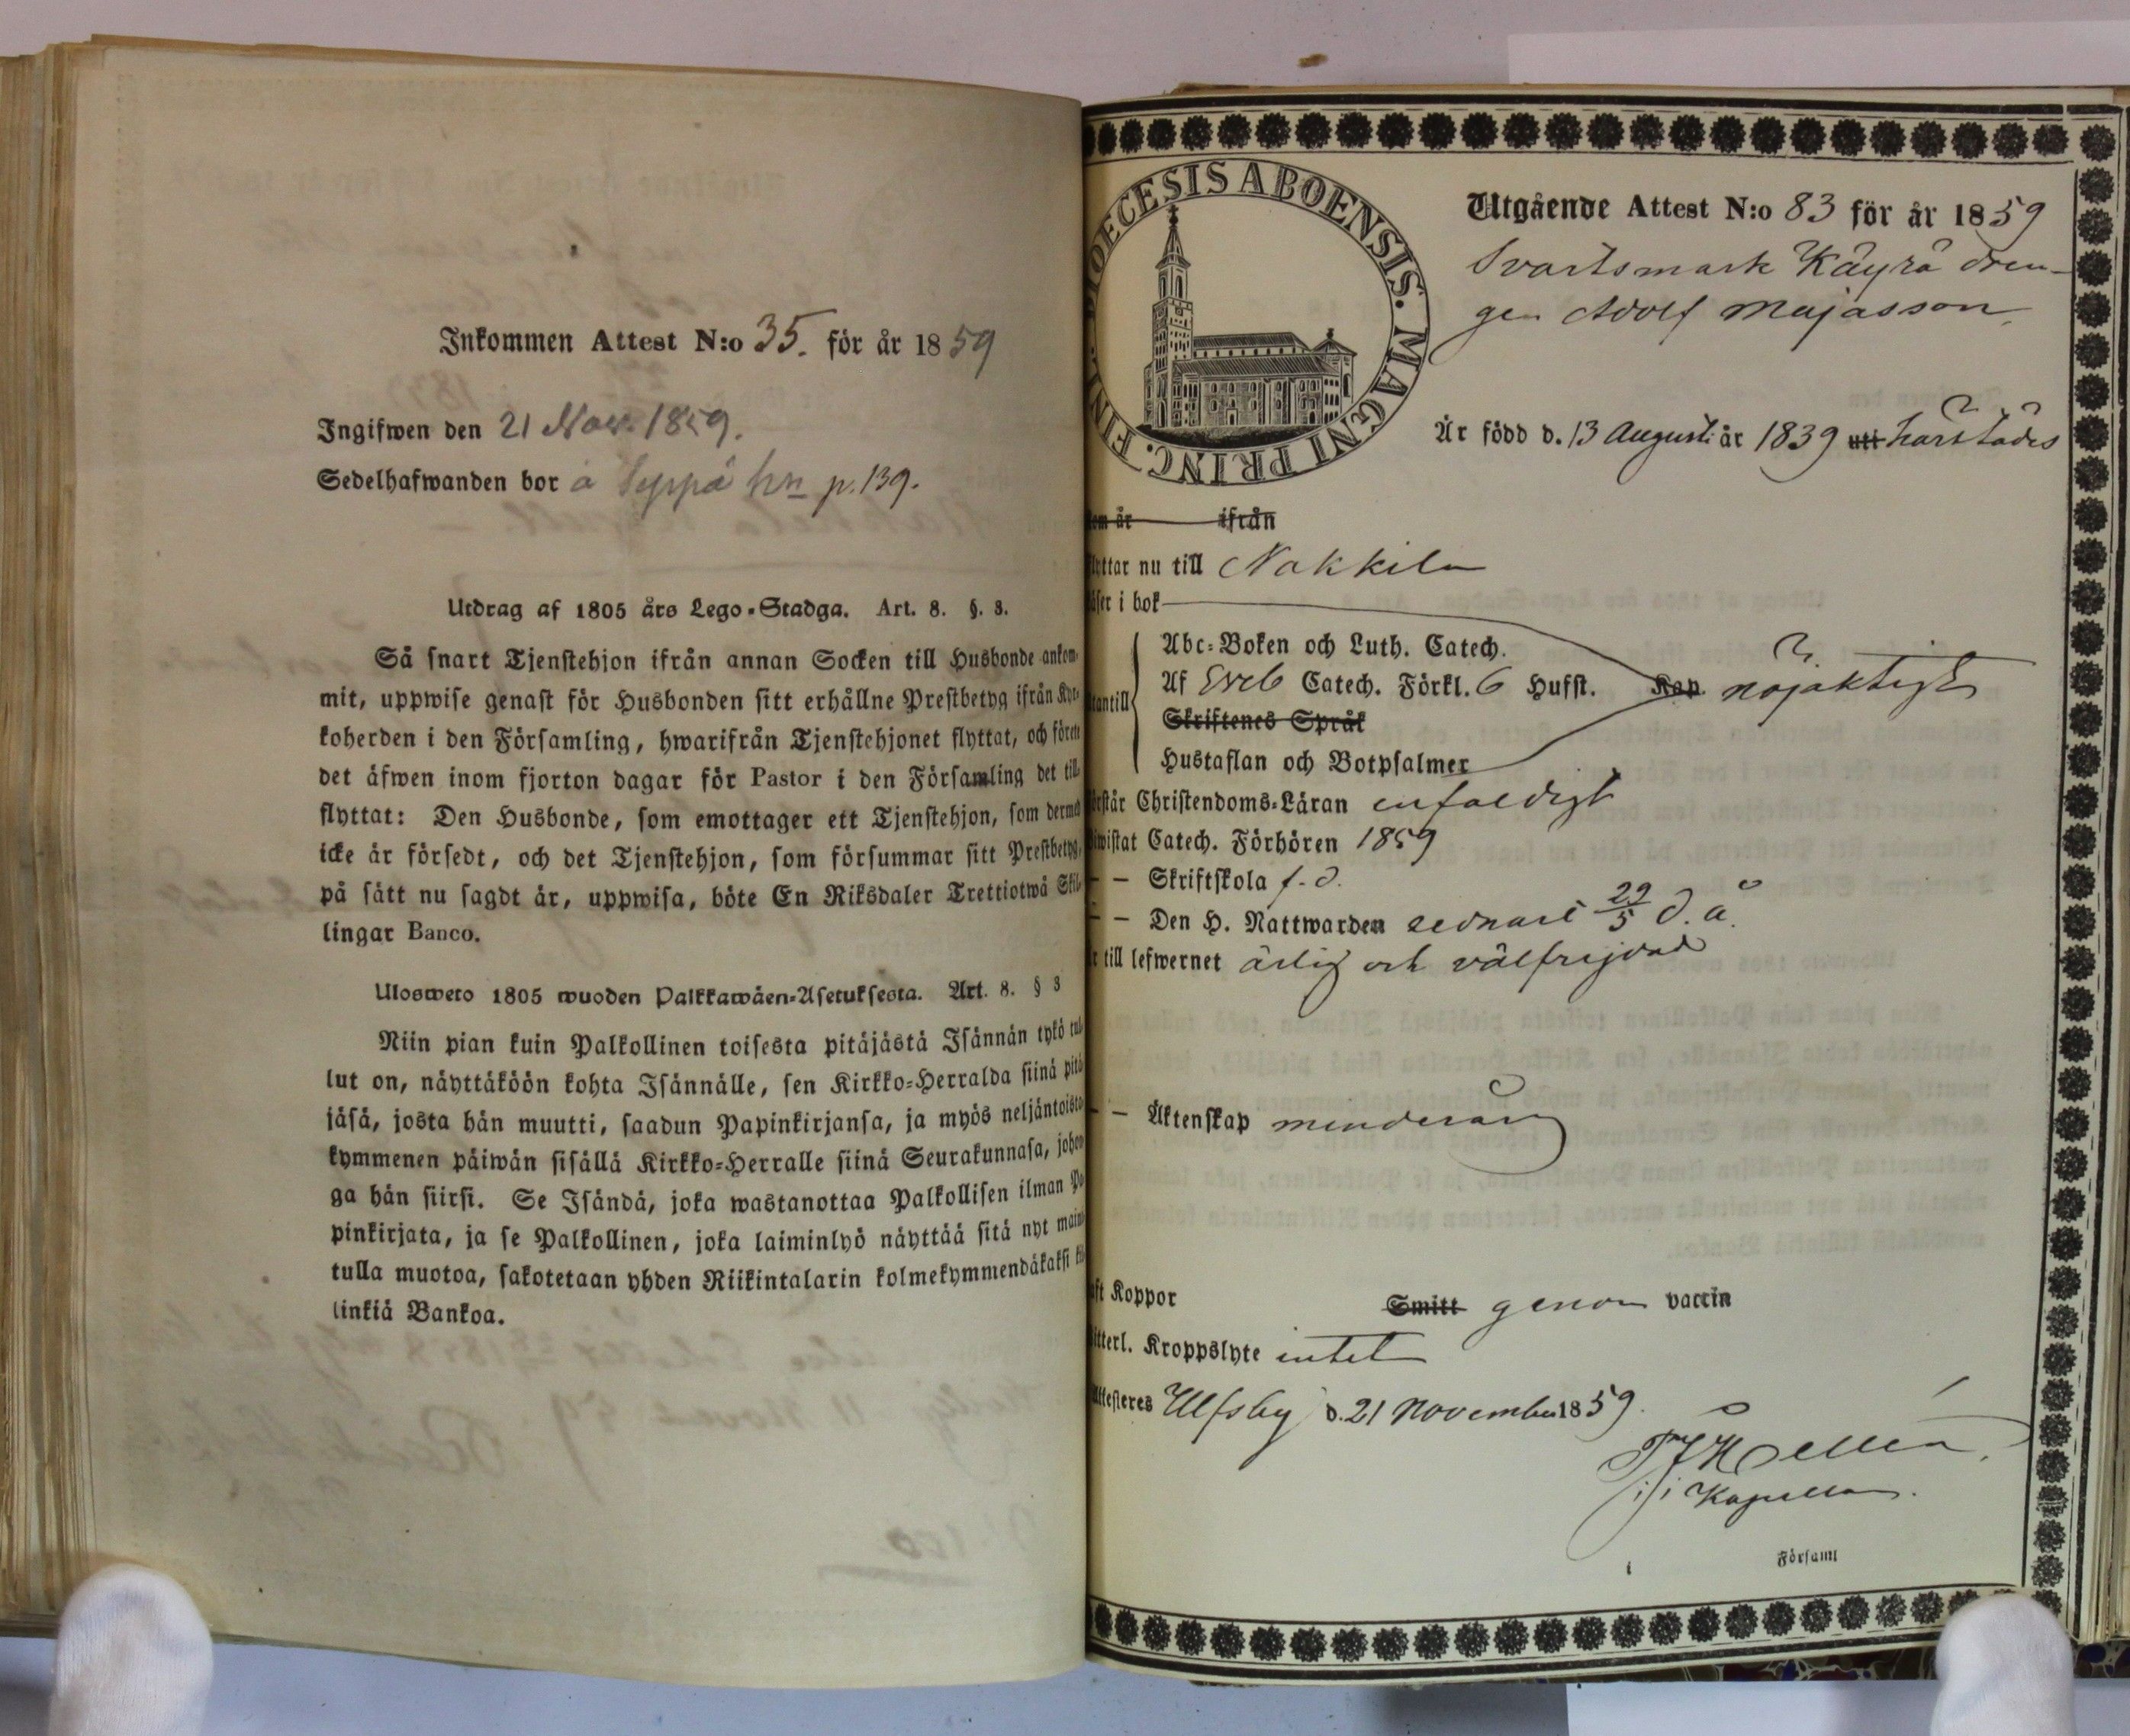 Inkommen Attest N:o 35. för år 1859
Ingifwen den 21 Nov. 1859.
Sedelhafwanden bor å Seppä hn p. 139.
Utdrag af 1805 års Lego-Stadga. Art. 8. §. 3.
Så snart Tjenstehjon ifrån annan Socken till Husbonde ankom-
mit, uppwise genast för Husbonden sitt erhållne Prestbetyg ifrån Kyr-
koherden i den Församling, hwarifrån Tjenstehjonet flyttat, och förete
det äfwen inom fjorton dagar för Pastor i den Församling det till-
flyttat: Den Husbonde, som emottager ett Tjenstehjon, som dermed
icke är försedt, och det Tjenstehjon, som försummar sitt Prestbetyg,
på sätt nu sagdt är, uppwisa, böte En Riksdaler Trettiotwå Skil-
lingar Banco.
Ulosweto 1805 wuoden Palkkawäen-Asetuksesta. Art. 8. § 3
Niin pian kuin Palkollinen toisesta pitäjästä Isännän tykö tul-
lut on, näyttäköön kohta Isännälle, sen Kirkko-Herralda siinä pitä-
jäsä, josta hän muutti, saadun Papinkirjansa, ja myös neljäntoista-
kymmenen päiwän sisällä Kirkko-Herralle siinä Seurakunnasa, johon-
ga hän siirsi. Se Isändä, joka wastanottaa Palkollisen ilman Pa-
pinkirjata, ja se Palkollinen, joka laiminlyö näyttää sitä nyt mainit-
tulla muotoa, sakotetaan yhden Riikintalarin kolmekymmendäkaksi kil-
linkiä Bankoa.
DIOECESIS ABOENSIS. MAGNI PRINC. FINL.
Utgående Attest N:o 83 för år 1859
Svartsmark Käyrä dren-
gen Adolf Majasson
Är född d. 13 Augusti år 1839 uti härstädes
som är ifrån
flyttar nu till Nakkila
läser i bok
utantill
Abc-Boken och Luth. Catech.
Af Sveb Catech. Förkl. 6 Hufst. Kap. nöjaktigt
Skriftenes Språk
Hustaflan och Botpsalmer
förstår Christendoms-Läran enfaldigt
bewistat Catech. Förhören 1859
— — Skriftskola f. d.
— — Den H. Nattwarden sednast 29/5 d. å.
är till lefwernet ärlig och välfrejdad
— — Äktenskap minderårig
haft Koppor Smitt genom vaccin
Witterl. Kroppslyte intet
Attesteras Ulfsby d. 21 November 1859.
Kapellan.
i Församl